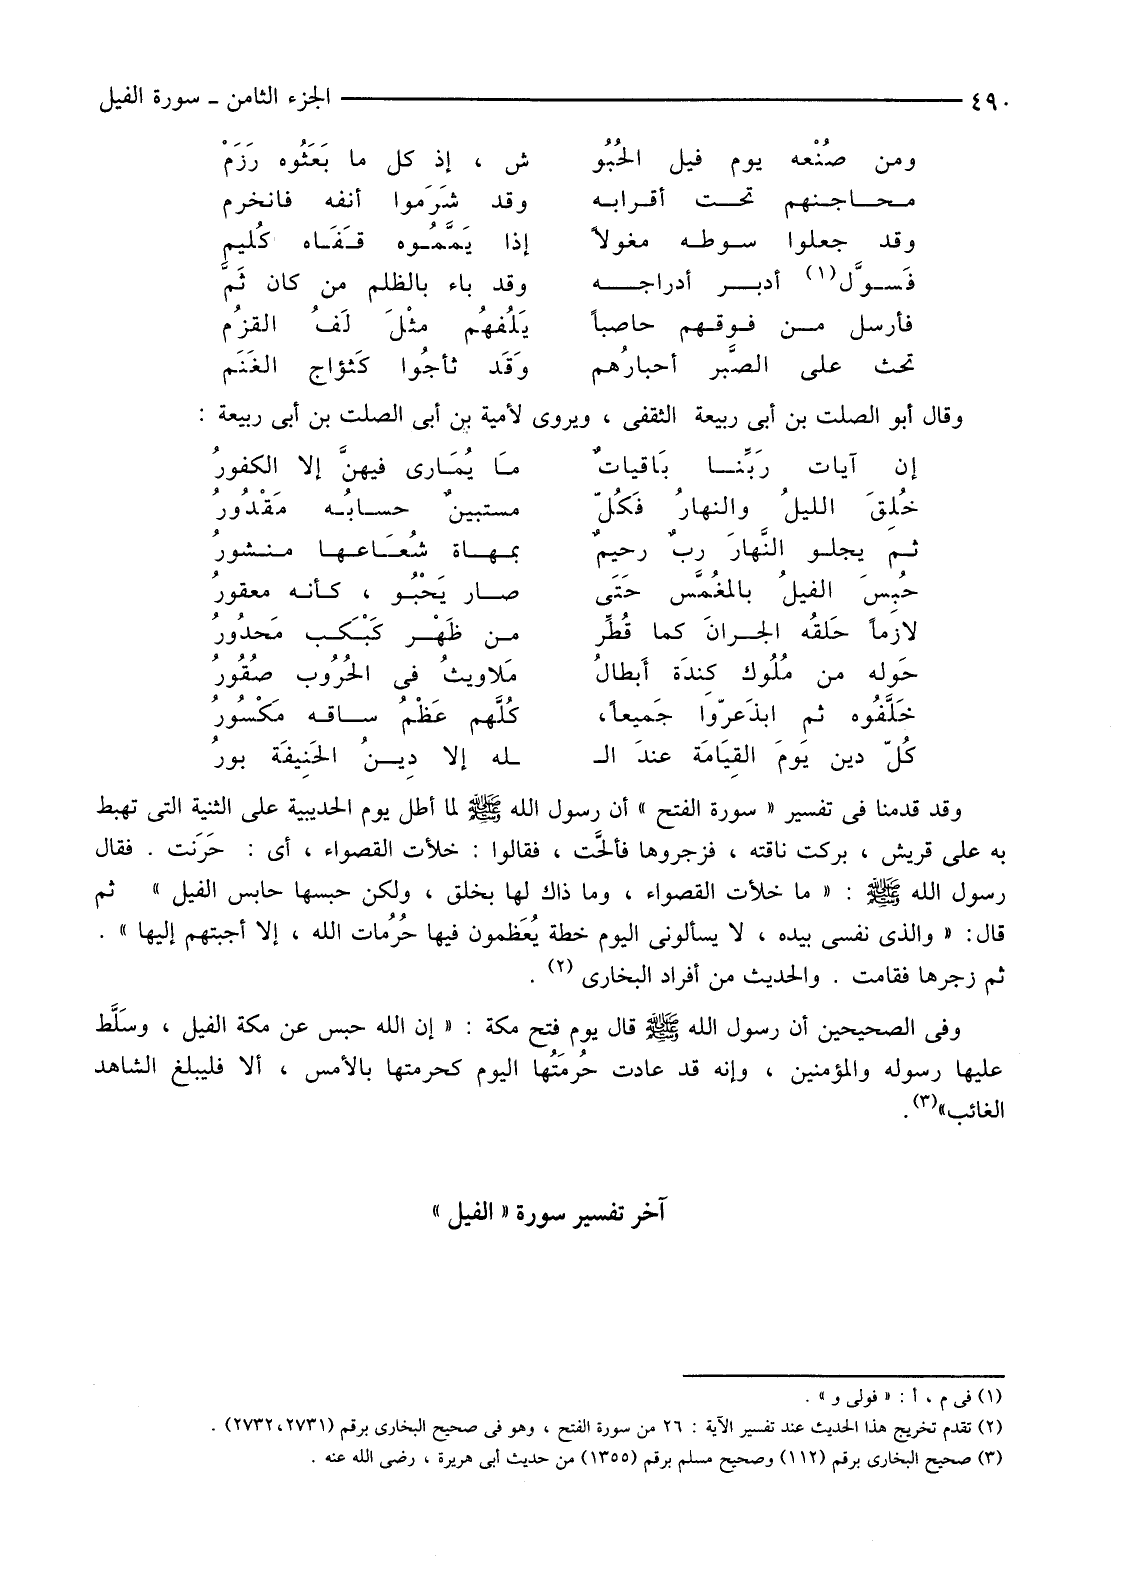 ٤٩٠ ــــــ الجزء الثامن ـ سورة الفيل
ومن صُنْعه يوم فيل الحُبُو ش ، إذ كل ما بَعَثُوه رَزَمْ
محاجنهم تحت أقرابه وقد شَرَموا أنفه فانخرم
وقد جعلوا سوطه مغولاً إذا يَمَّمُوه قَفَاه كُليم
فَسوَّل(١) أدبر أدراجه وقد باء بالظلم من كان ثَمَّ
فأرسل من فوقهم حاصباً يَلُفهُم مثْلَ لَفُ القزُم
تحث على الصَّبر أحبارُهم وَقَد ثأجُوا كَثؤاج الغَنَم
وقال أبو الصلت بن أبى ربيعة الثقفى ، ويروى لأمية بن أبى الصلت بن أبى ربيعة :
إن آيات رَبِّنا بَاقياتٌ مَا يُمَارى فيهنَّ إلا الكفورُ
خُلِقَ الليلُ والنهارُ فَكُلّ مستبينٌ حسابُه مَقْدُورُ
ثم يجلو النَّهارَ ربٌ رحيمٌ بمهاة شُعَاعها منشورُ
حُبِسَ الفيلُ بالمُغمَّس حَتَى صار يَحْبُو ، كأنه معقورُ
لازماً حَلقُه الجرانَ كما قُطِّر من ظَهْر كَبْكَب مَحدُورُ
حَوله من مُلُوك كندَة أبطالُ مَلاويثُ فى الحُرُوب صُقُورُ
خَلَّفُوه ثم ابذَعرّوا جَميعاً، كُلَّهم عَظْمُ ساقه مَكْسُورُ
كُلّ دين يَومَ القِيَامَة عندَ الـ ـله إلا دِينُ الحَنِيفَة بورُ
وقد قدمنا فى تفسير « سورة الفتح » أن رسول الله ﷺ لما أطل يوم الحديبية على الثنية التى تهبط
به على قريش ، بركت ناقته ، فزجروها فألحَّت ، فقالوا : خلأت القصواء ، أى : حَرَنت . فقال
رسول الله ﷺ : « ما خلأت القصواء ، وما ذاك لها بخلق ، ولكن حبسها حابس الفيل » ثم
قال: « والذى نفسى بيده ، لا يسألونى اليوم خطة يُعَظمون فيها حُرُمات الله ، إلا أجبتهم إليها » .
ثم زجرها فقامت . والحديث من أفراد البخارى (٢) .
وفى الصحيحين أن رسول الله ﷺ قال يوم فتح مكة : « إن الله حبس عن مكة الفيل ، وسَلَّط
عليها رسوله والمؤمنين ، وإنه قد عادت حُرمَتُها اليوم كحرمتها بالأمس ، ألا فليبلغ الشاهد
الغائب»(٣).
آخر تفسير سورة « الفيل »
(١) فى م ، أ : « فولى و » .
(٢) تقدم تخريج هذا الحديث عند تفسير الآية : ٢٦ من سورة الفتح ، وهو فى صحيح البخارى برقم (٢٧٣١، ٢٧٣٢) .
(٣) صحيح البخارى برقم (١١٢) وصحيح مسلم برقم (١٣٥٥) من حديث أبى هريرة ، رضى الله عنه .